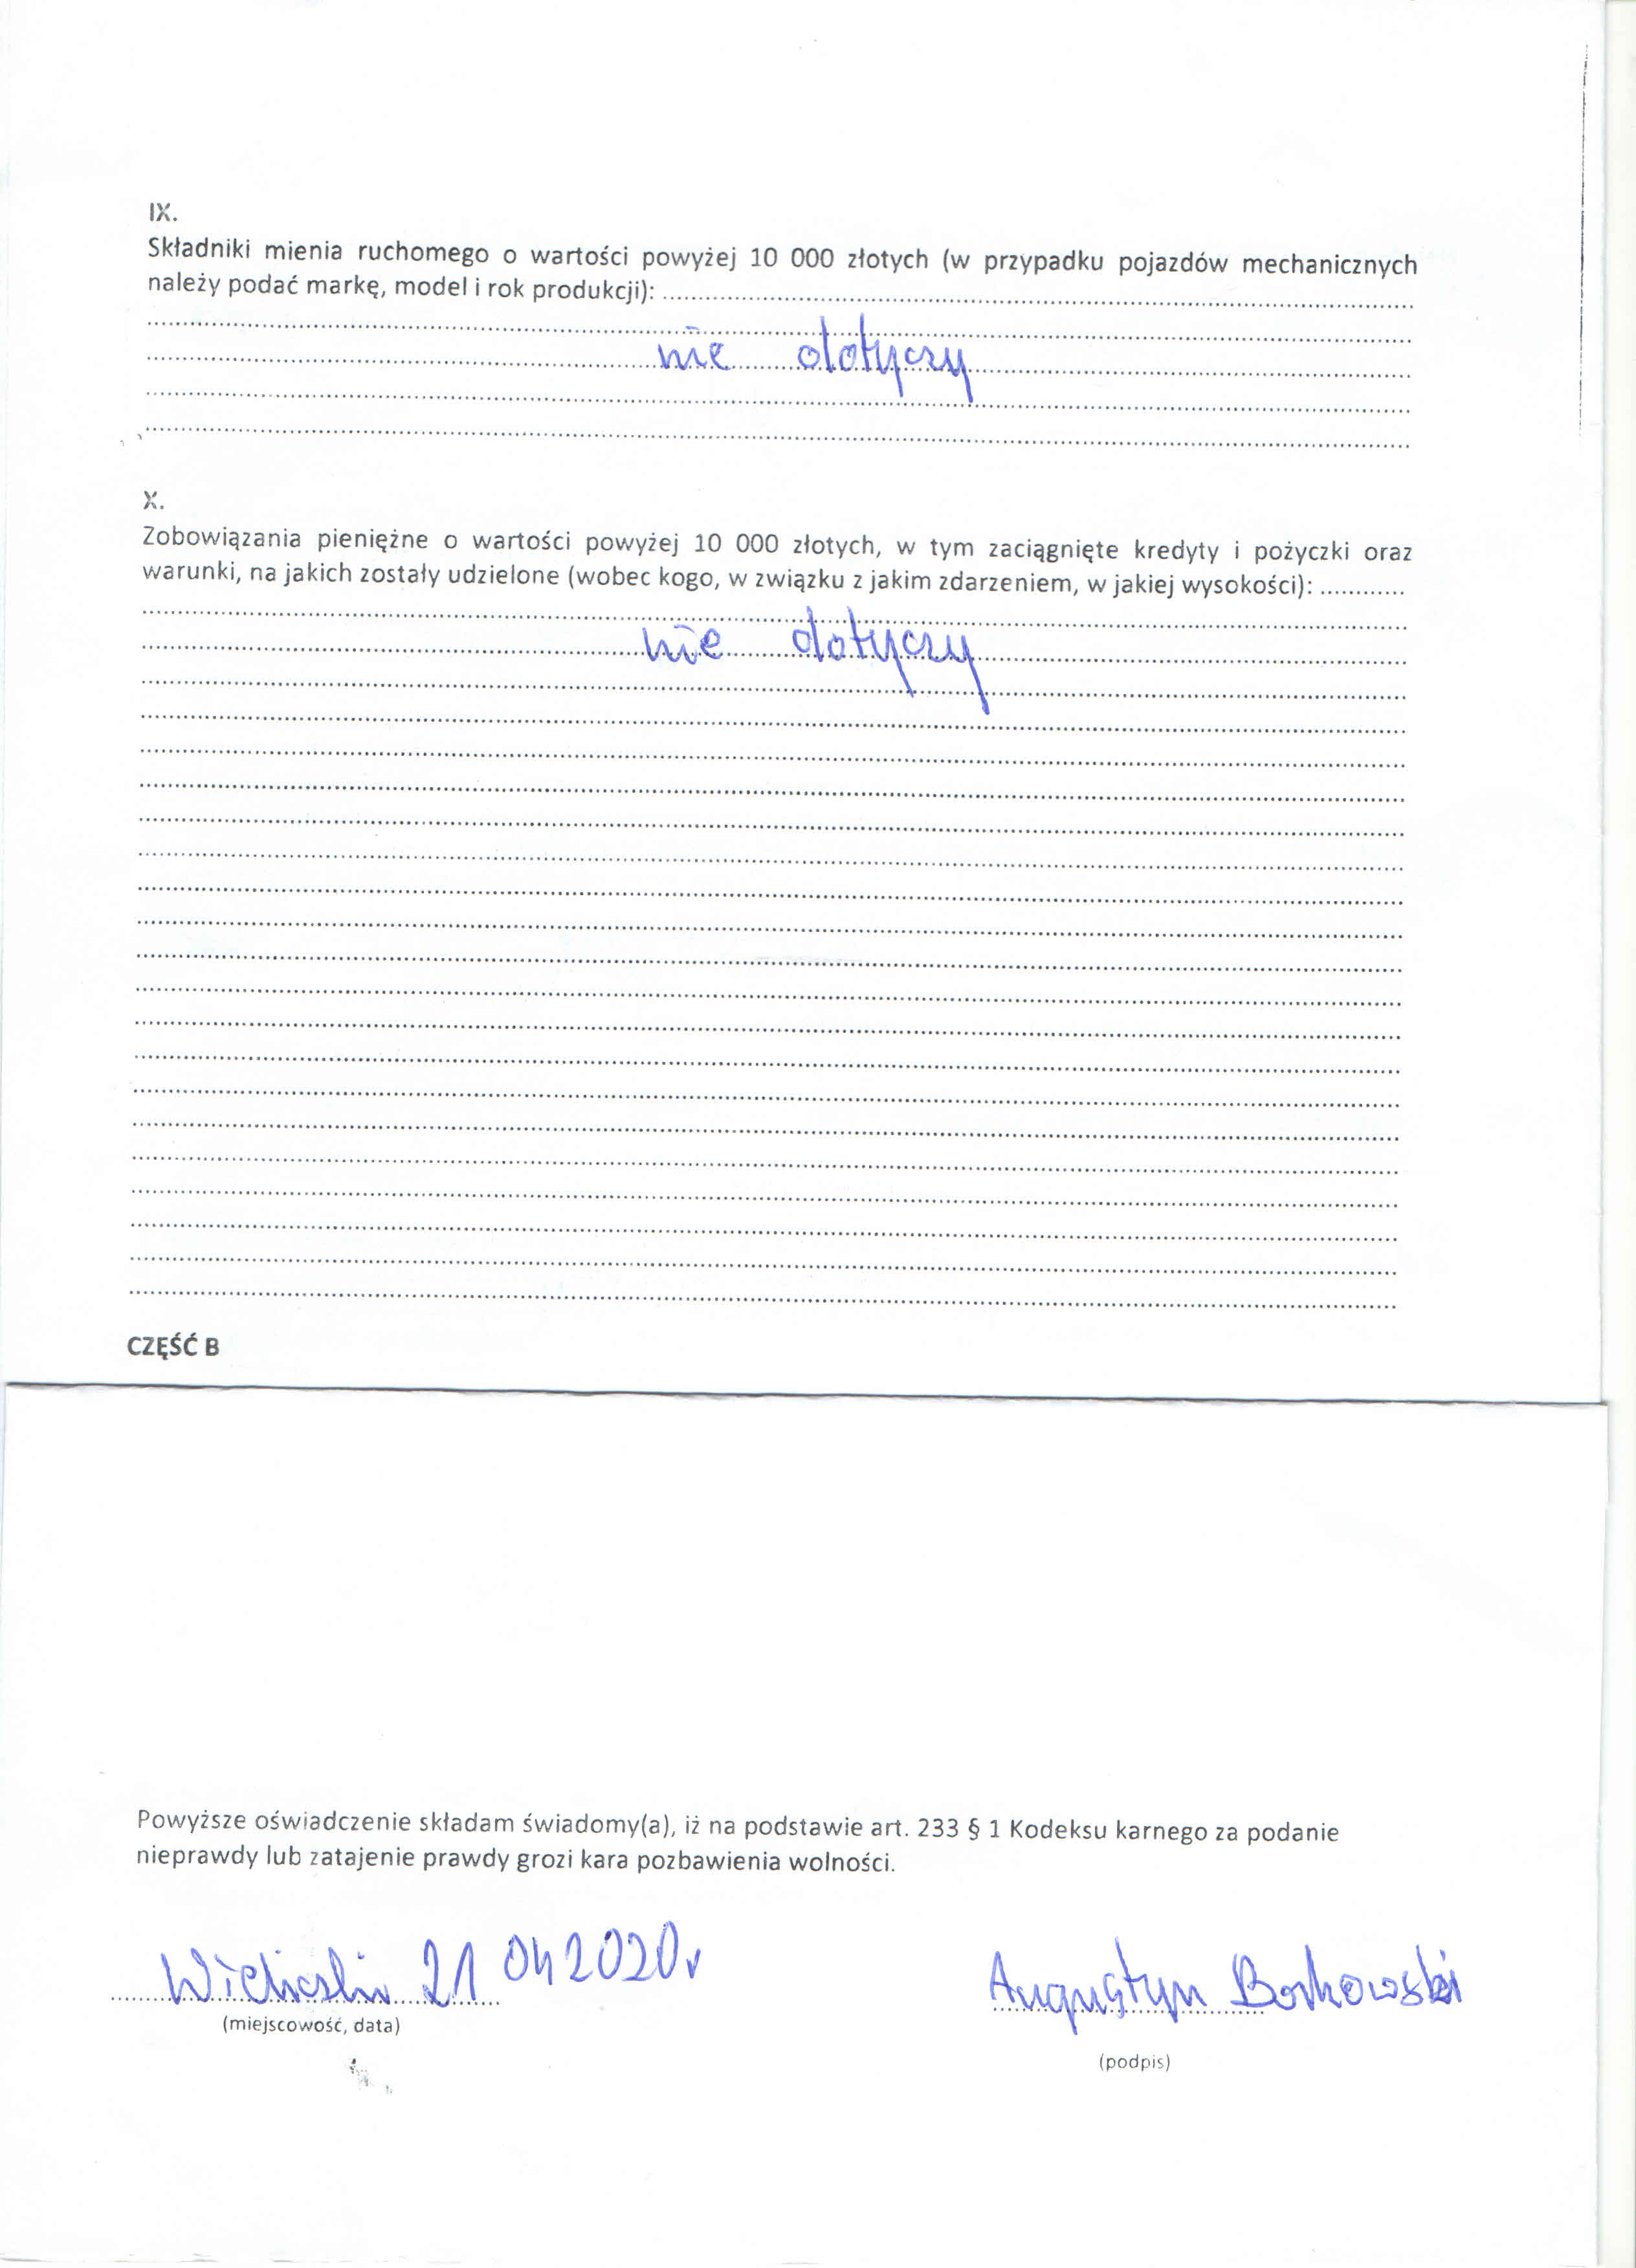 IX.
Składniki mienia ruchomego o wartości powyżej 10 000 złotych (w przypadku pojazdów mechanicznych
należy podać markę, model i rok produkcji):
nie dotyczy
X.
Zobowiązania pieniężne o wartości powyżej 10 000 złotych, w tym zaciągnięte kredyty i pożyczki oraz
warunki, na jakich zostały udzielone (wobec kogo, w związku z jakim zdarzeniem, w jakiej wysokości):
nie dotyczy
CZĘŚĆ B
Powyższe oświadczenie składam świadomy(a), iż na podstawie art. 233 § 1 Kodeksu karnego za podanie
nieprawdy lub zatajenie prawdy grozi kara pozbawienia wolności.
21 04 2020r Augustyn Borkowski
(miejscowość, data)
(podpis)